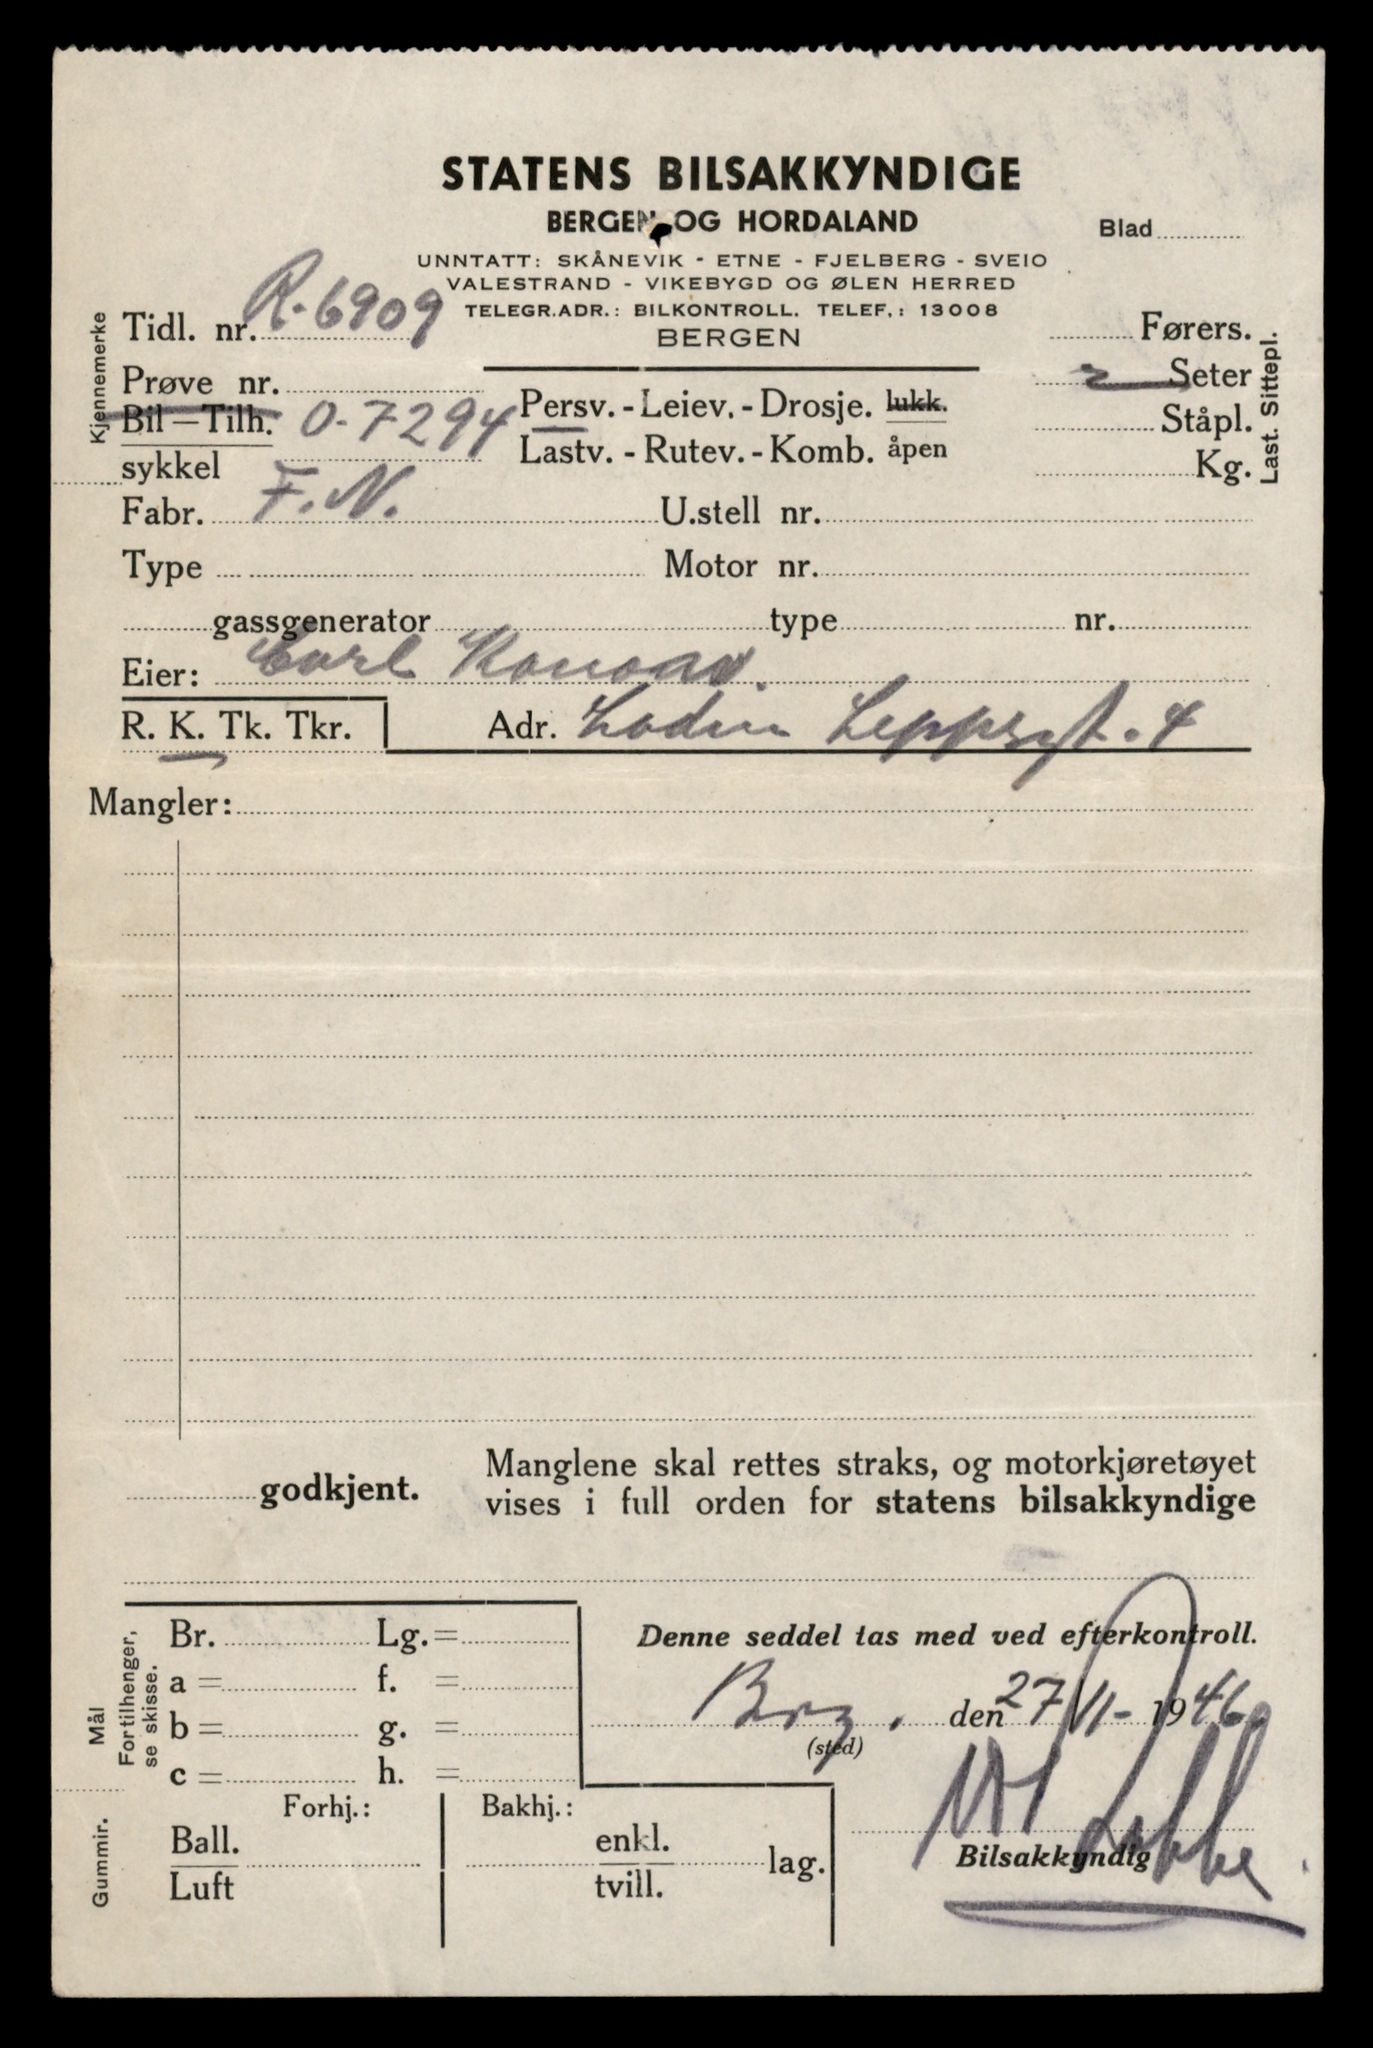 STATENS BILSAKKYNDIGE
BERGEN OG HORDALAND
Blad
UNNTATT: SKÅNEVIK - ETNE - FJELBERG - SVEIO
VALESTRAND - VIKEBYGD OG ØLEN HERRED
TELEGR.ADR.: BILKONTROLL. TELEF.: 13008
BERGEN
Kjennemerke
Tidl. nr. R-6909
Prøve nr.
Bil — Tilh. O-7294
sykkel
Persv. - Leiev. - Drosje. lukk.
Lastv. - Rutev. - Komb. åpen
Førers.
2 Seter
Ståpl.
Kg.
Last. Sittepl.
Fabr. F.N. U.stell nr.
Type Motor nr.
gassgenerator type nr.
Eier: Carl Konow.
R. K. Tk. Tkr. Adr. Lodin Leppsgt. 4
Mangler:
godkjent.
Manglene skal rettes straks, og motorkjøretøyet
vises i full orden for statens bilsakkyndige
Mål
Fortilhenger,
se skisse.
Br. Lg. =
a = f. =
b = g. =
c = h. =
Denne seddel tas med ved efterkontroll.
Brg. den 27/11-1946.
(sted)
Gummir.
Forhj.: Bakhj.:
Ball.
Luft
enkl.
tvill.
lag.
Bilsakkyndig